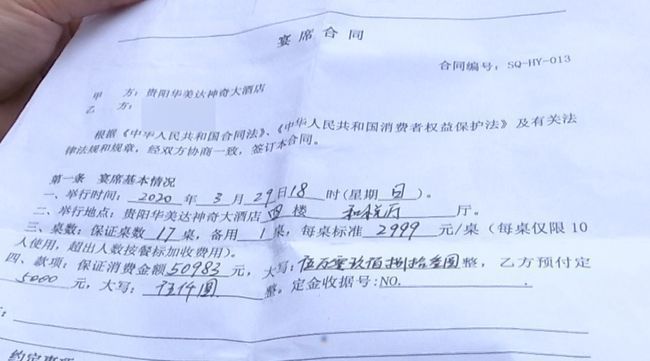 宴席合同
合同编号：SQ-HY-013
甲 方：贵阳华美达神奇大酒店
乙 方：
根据《中华人民共和国合同法》、《中华人民共和国消费者权益保护法》及有关法
律法规和规章，经双方协商一致，签订本合同。
第一条 宴席基本情况
一、举行时间：2020 年 3 月 29 日 18 时(星期 日 )。
二、举行地点：贵阳华美达神奇大酒店 四 楼 和悦厅 厅。
三、桌数：保证桌数 17 桌，备用 1 桌；每桌标准 2999 元/桌（每桌仅限 10
人使用，超出人数按餐标加收费用）。
四、款项：保证消费金额 50983 元，大写：伍万零玖佰捌拾叁圆 整，乙方预付定
5000 元，大写：伍仟圆 整，定金收据号：NO. .